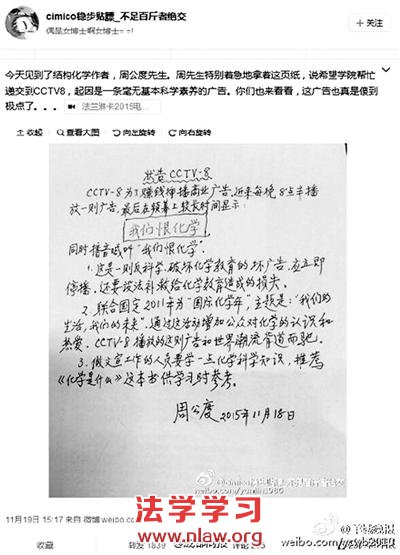 cimico稳步贴膘_不足百斤者绝交
偶是女博士啊女博士= =!
+ 关注
今天见到了结构化学作者，周公度先生。周先生特别着急地拿着这页纸，说希望学院帮忙
递交到CCTV8，起因是一条毫无基本科学素养的广告。你们也来看看，这广告也真是傻到
极点了。。。 法兰琳卡2015电...
收起 查看大图 向左旋转 向右旋转
状告CCTV-8
CCTV-8为了赚钱神播商业广告，近来每晚8点半播
放一则广告，最后在频幕上较长时间显示：
我们恨化学
同时播音喊叫“我们恨化学”。
1. 这是一则反科学、破坏化学教育的坏广告，应立即
停播，还要设法补救给化学教育造成的损失。
2. 联合国定2011年为“国际化学年”，主题是：“我们的
生活，我们的未来”，通过这活动增加公众对化学的认识和
热爱。CCTV-8播放的这则广告和世界潮流背道而驰。
3. 做文宣工作的人员要学一点化学科学知识，推荐
《化学是什么》这本书供学习时参考。
周公度
2015年11月18日
weibo.com/yumlin1986
法学学习
www.nlaw.org
11月19日 15:17 来自 微博 weibo.com
收藏 转发 1839
羊城晚报
weibo.com/ycwb2010